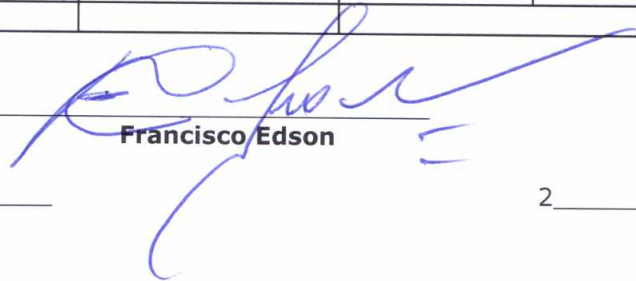 Francisco Edson
2